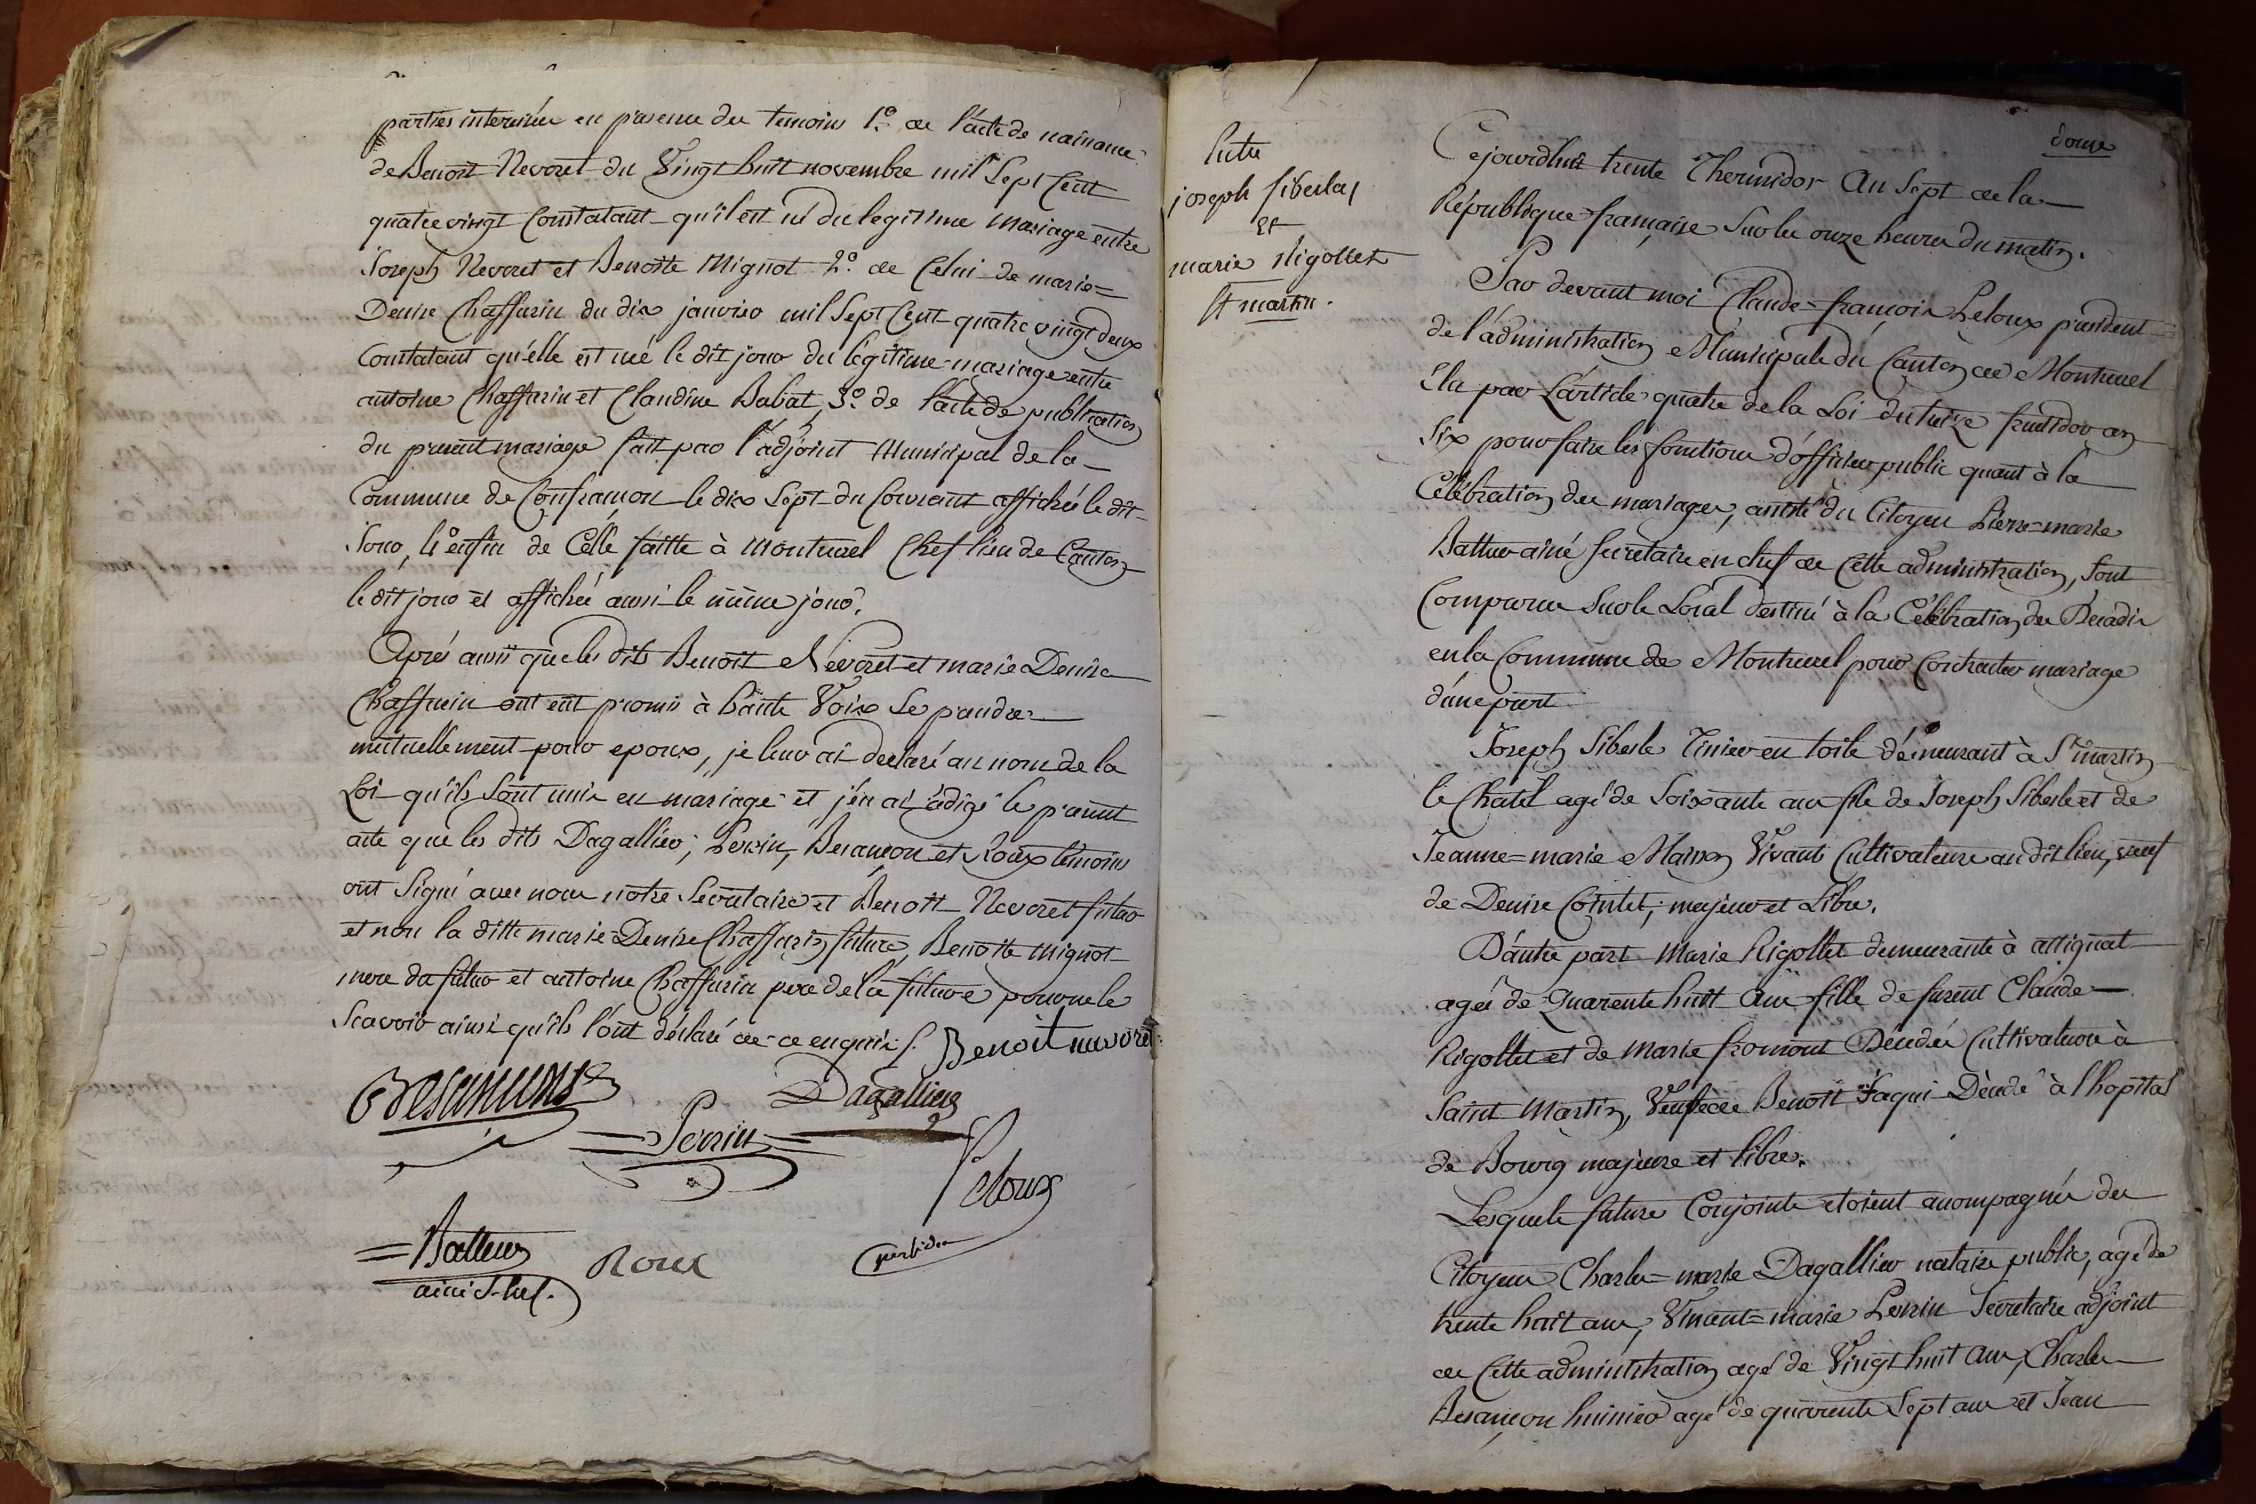 parties interessées en presence des temoins 1.° de l'acte de naissance
de Benoit Nevoret du Vingt huit novembre mil Sept Cent
quatre vingt Constatant qu'il est né du legitime Mariage entre
Joseph Nevoret et Benoite Mignot 2.° de Celui de marie=
Denise Chaffurin du dix janvier mil Sept Cent quatre vingt deux
Constatant qu'elle est née le dit jour du légitime mariage entre
antoine Chaffurin et Claudine Babat, 3.° de l'acte de publication
du present mariage fait par l'adjoint Municipal de la
Commune de Confrançon le dix Sept du Courant affichée le dit
Jour, 4.° enfin de Celle faitte à Montrevel Chef lieu de Canton
le dit jour et affichée aussi le même jour.
Après aussi que les dits Benoit Nevoret et marie Denise
Chaffurin ont eut promis à haute Voix Se prendre
mutuellement pour epoux, je leur ai declaré au nom de la
Loi qu'ils Sont unis en mariage et j'en ai rédigé le present
acte que les dits Dagallier, Perrin, Besançon et Roux temoins
ont Signé avec nous notre Secretaire et Benoit Nevoret futur
et non la ditte marie Denise Chaffurin future, Benoite Mignot
mere du futur et antoine Chaffurin pere de la future pour ne le
Scavoir ainsi qu'ils l'ont déclaré de ce enquis /. Benoit nuvoret
Besançons Dagallier
=Perrin=
Peloux
president
=Batteur Roux
ainé S. chef.
Entre
joseph Siberlas
Et
marie Rigollet
St martin.
douze
Cejourdhui trente Thermidor An Sept de la
République française Sur les onze heures du matin.
Par devant moi Claude=françois Peloux president
de l'administration Municipale du Canton de Montrevel
Elu par L'article quatre de la Loi du treize fructidor an
Six pour faire les fonctions d'officier public quant à la
Célébration des mariages, assisté du Citoyen Pierre=marie
Batteur ainé Secretaire en chef de Cette administration, Sont
Comparus Sur le Local destiné à la Célébration des Decadis
en la Commune de Montrevel pour Contracter mariage
d'une part
Joseph Siberle Tissier en toile demeurant à St martin
le Chatel agé de Soixante ans fils de Joseph Siberle et de
Jeanne=marie Maison Vivant Cultivateurs au dit lieu, veuf
de Denise Cointet, majeur et Libre.
D'autre part Marie Rigollet demeurante à attignat
agée de Quarente huit Ans fille de furent Claude
Rigollet et de Marie fromont Décedés Cultivateurs à
Saint Martin, Veufve de Benoit Faqui Décedé à l'hopital
de Bourg majeure et libre.
Lesquels futurs Conjoints etoient acompagnés des
Citoyens Charles=marie Dagallier notaire public, agé de
trente huit ans, Vincent=marie Perrin Secretaire adjoint
de Cette administration agé de Vingt huit Ans, Charles
Besançon huissier agé de quarente Sept ans et Jean